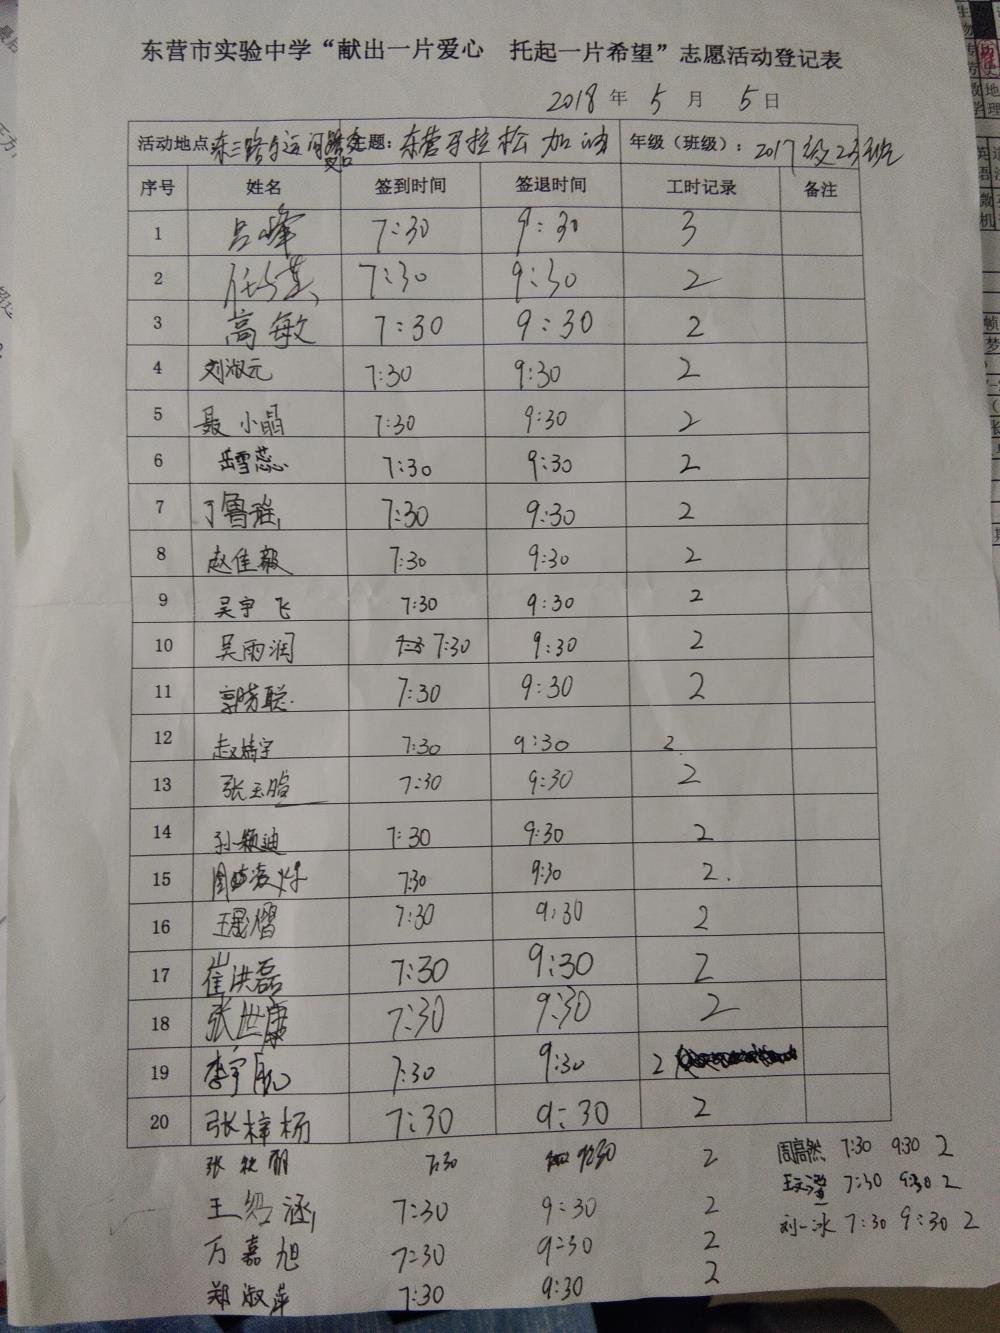 东营市实验中学“献出一片爱心 托起一片希望”志愿活动登记表
2018 年 5 月 5 日
活动地点：东三路与运河路交口 主题：东营马拉松 加油 年级（班级）：2017级23班
序号 姓名 签到时间 签退时间 工时记录 备注
1 吕峰 7:30 9:30 3
2 7:30 9:30 2
3 高敏 7:30 9:30 2
4 刘淑元 7:30 9:30 2
5 聂小晶 7:30 9:30 2
6 岳雪蕊 7:30 9:30 2
7 丁鲁瑶 7:30 9:30 2
8 赵佳毅 7:30 9:30 2
9 吴宇飞 7:30 9:30 2
10 吴雨润 7:30 9:30 2
11 郭芳聪 7:30 9:30 2
12 赵婧宇 7:30 9:30 2
13 张玉暄 7:30 9:30 2
14 孙颖迪 7:30 9:30 2
15 7:30 9:30 2
16 7:30 9:30 2
17 崔洪磊 7:30 9:30 2
18 张世康 7:30 9:30 2
19 李宇航 7:30 9:30 2
20 张梓杨 7:30 9:30 2
张 丽 7:30 9:30 2 周高然 7:30 9:30 2
王绍涵 7:30 9:30 2 王文澄 7:30 9:30 2
万嘉旭 7:30 9:30 2 刘一冰 7:30 9:30 2
郑淑萍 7:30 9:30 2